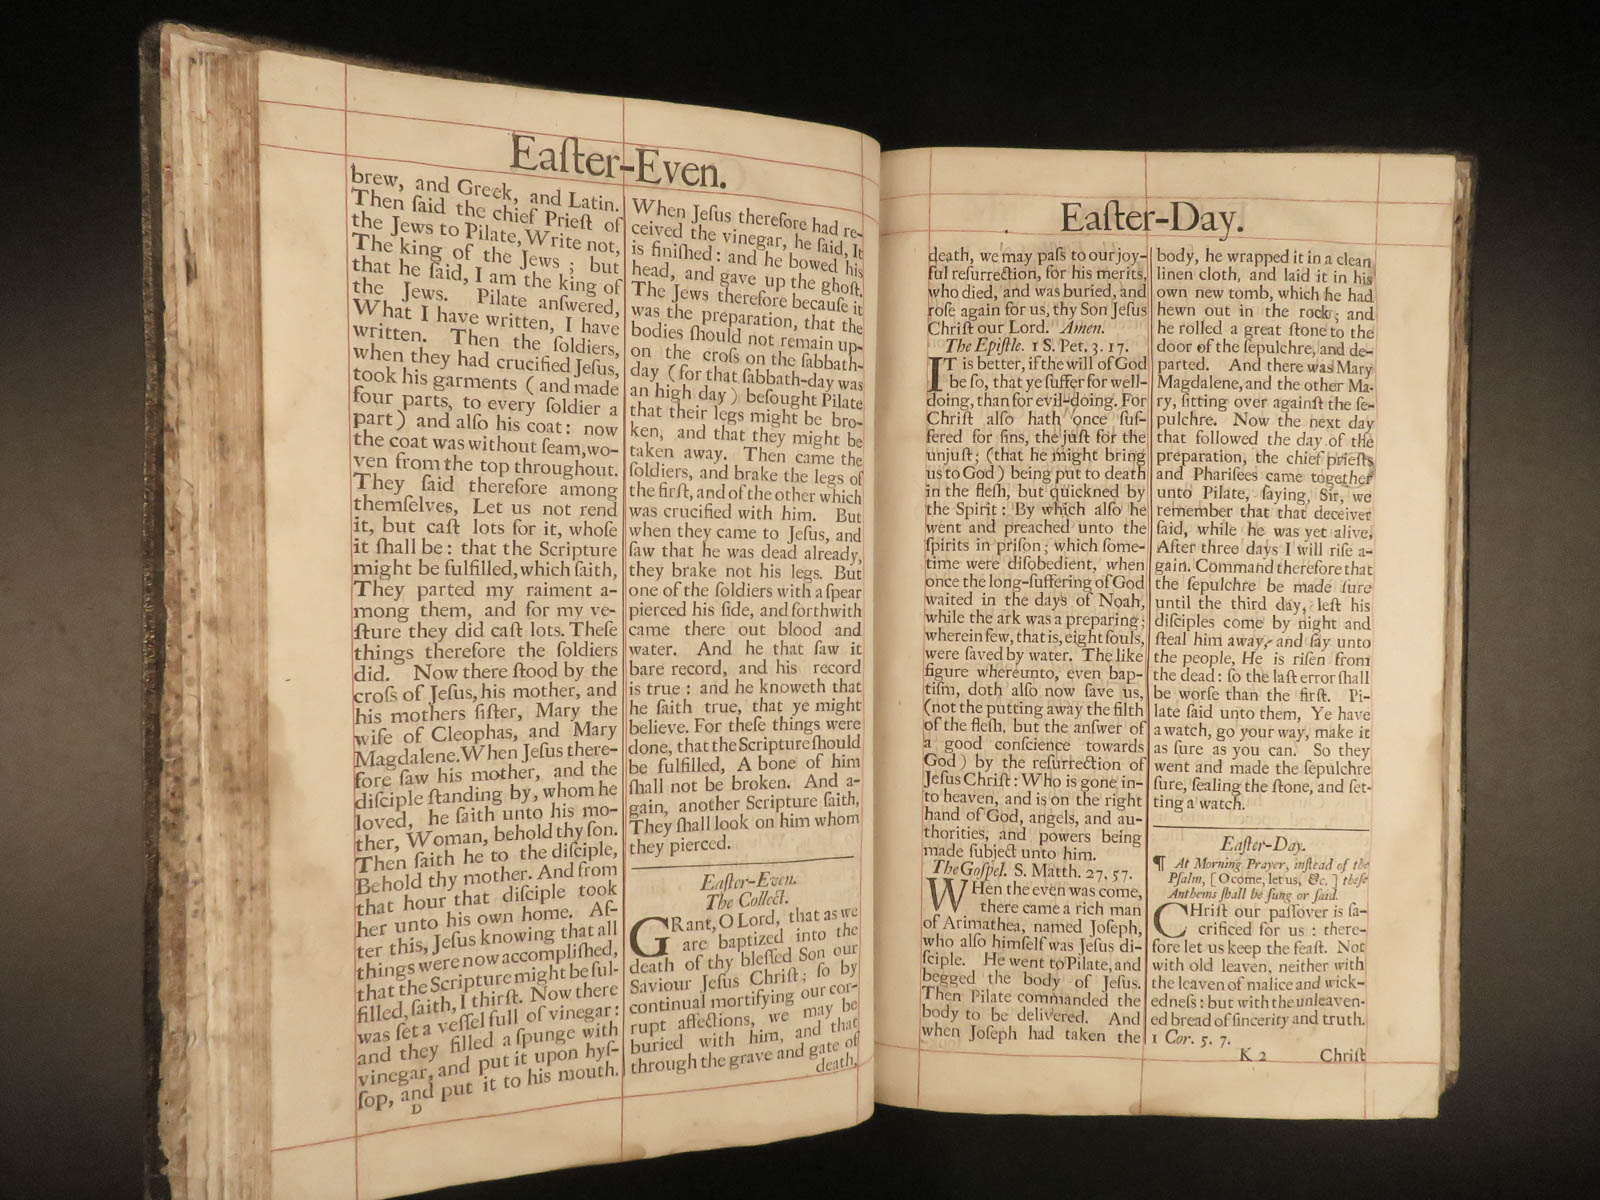 Eaſter-Even.
brew, and Greek, and Latin.
Then ſaid the chief Prieſt of
the Jews to Pilate, Write not,
The king of the Jews ; but
that he ſaid, I am the king of
the Jews. Pilate anſwered,
What I have written, I have
written. Then the ſoldiers,
when they had crucified Jeſus,
took his garments ( and made
four parts, to every ſoldier a
part ) and alſo his coat: now
the coat was without ſeam, wo-
ven from the top throughout.
They ſaid therefore among
themſelves, Let us not rend
it, but caſt lots for it, whoſe
it ſhall be: that the Scripture
might be fulfilled, which ſaith,
They parted my raiment a-
mong them, and for my ve-
ſture they did caſt lots. Theſe
things therefore the ſoldiers
did. Now there ſtood by the
croſs of Jeſus, his mother, and
his mothers ſiſter, Mary the
wife of Cleophas, and Mary
Magdalene. When Jeſus there-
fore ſaw his mother, and the
diſciple ſtanding by, whom he
loved, he ſaith unto his mo-
ther, Woman, behold thy ſon.
Then ſaith he to the diſciple,
Behold thy mother. And from
that hour that diſciple took
her unto his own home. Af-
ter this, Jeſus knowing that all
things were now accompliſhed,
that the Scripture might be ful-
filled, ſaith, I thirſt. Now there
was ſet a veſſel full of vinegar:
and they filled a ſpunge with
vinegar, and put it upon hyſ-
ſop, and put it to his mouth.
D
When Jeſus therefore had re-
ceived the vinegar, he ſaid, It
is finiſhed: and he bowed his
head, and gave up the ghoſt.
The Jews therefore becauſe it
was the preparation, that the
bodies ſhould not remain up-
on the croſs on the ſabbath-
day (for that ſabbath-day was
an high day ) beſought Pilate
that their legs might be bro-
ken, and that they might be
taken away. Then came the
ſoldiers, and brake the legs of
the firſt, and of the other which
was crucified with him. But
when they came to Jeſus, and
ſaw that he was dead already,
they brake not his legs. But
one of the ſoldiers with a ſpear
pierced his ſide, and forthwith
came there out blood and
water. And he that ſaw it
bare record, and his record
is true : and he knoweth that
he ſaith true, that ye might
believe. For theſe things were
done, that the Scripture ſhould
be fulfilled, A bone of him
ſhall not be broken. And a-
gain, another Scripture ſaith,
They ſhall look on him whom
they pierced.
Eaſter-Even.
The Collect.
GRant, O Lord, that as we
are baptized into the
death of thy bleſſed Son our
Saviour Jeſus Chriſt; ſo by
continual mortifying our cor-
rupt affections, we may be
buried with him, and that
through the grave and gate of
death,
Eaſter-Day.
death, we may paſs to our joy-
ful reſurrection, for his merits,
who died, and was buried, and
roſe again for us, thy Son Jeſus
Chriſt our Lord. Amen.
The Epiſtle. 1 S. Pet. 3. 17.
IT is better, if the will of God
be ſo, that ye ſuffer for well-
doing, than for evil-doing. For
Chriſt alſo hath once ſuf-
fered for ſins, the juſt for the
unjuſt; (that he might bring
us to God) being put to death
in the fleſh, but quickned by
the Spirit : By which alſo he
went and preached unto the
ſpirits in priſon; which ſome-
time were diſobedient, when
once the long-ſuffering of God
waited in the days of Noah,
while the ark was a preparing;
wherein few, that is, eight ſouls,
were ſaved by water. The like
figure whereunto, even bap-
tiſm, doth alſo now ſave us,
(not the putting away the filth
of the fleſh, but the anſwer of
a good conſcience towards
God) by the reſurrection of
Jeſus Chriſt: Who is gone in-
to heaven, and is on the right
hand of God, angels, and au-
thorities, and powers being
made ſubject unto him.
The Goſpel. S. Matth. 27, 57.
WHen the even was come,
there came a rich man
of Arimathea, named Joſeph,
who alſo himſelf was Jeſus di-
ſciple. He went to Pilate, and
begged the body of Jeſus.
Then Pilate commanded the
body to be delivered. And
when Joſeph had taken the
body, he wrapped it in a clean
linen cloth, and laid it in his
own new tomb, which he had
hewn out in the rock; and
he rolled a great ſtone to the
door of the ſepulchre, and de-
parted. And there was Mary
Magdalene, and the other Ma-
ry, ſitting over againſt the ſe-
pulchre. Now the next day
that followed the day of the
preparation, the chief prieſts
and Phariſees came together
unto Pilate, ſaying, Sir, we
remember that that deceiver
ſaid, while he was yet alive,
After three days I will riſe a-
gain. Command therefore that
the ſepulchre be made ſure
until the third day, leſt his
diſciples come by night and
ſteal him away, and ſay unto
the people, He is riſen from
the dead: ſo the laſt error ſhall
be worſe than the firſt. Pi-
late ſaid unto them, Ye have
a watch, go your way, make it
as ſure as you can. So they
went and made the ſepulchre
ſure, ſealing the ſtone, and ſet-
ting a watch.
Eaſter-Day.
¶ At Morning Prayer, inſtead of the
Pſalm, [ O come, let us, &c. ] theſe
Anthems ſhall be ſung or ſaid.
CHriſt our paſſover is ſa-
crificed for us : there-
fore let us keep the feaſt. Not
with old leaven, neither with
the leaven of malice and wick-
edneſs: but with the unleaven-
ed bread of ſincerity and truth.
1 Cor. 5. 7.
K 2 Chriſt